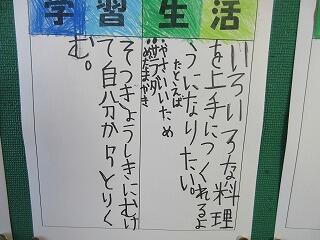 学習
生活
いろいろな料理
を上手につくれるよ
うになりたい。
たとえば
やさいいため
サラダ
めだまやき
そつぎょうしきにむけ
て自分からとりく
む。